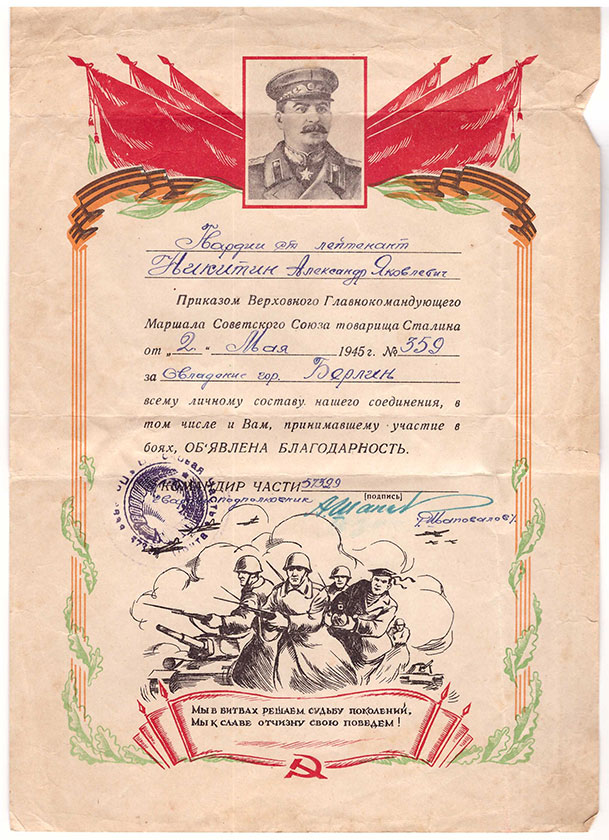 Гвардии ст лейтенант
Никитин Александр Яковлевич
Приказом Верховного Главнокомандующего
Маршала Советского Союза товарища Сталина
от „2.“ Мая 1945 г. № 359
за Овладение гор. Берлин
всему личному составу нашего соединения, в
том числе и Вам, принимавшему участие в
боях, ОБ'ЯВЛЕНА БЛАГОДАРНОСТЬ.
КОМАНДИР ЧАСТИ 57399
(подпись)
гвардии подполковник
/Шаповалов/
МЫ В БИТВАХ РЕШАЕМ СУДЬБУ ПОКОЛЕНИЙ,
МЫ К СЛАВЕ ОТЧИЗНУ СВОЮ ПОВЕДЕМ!